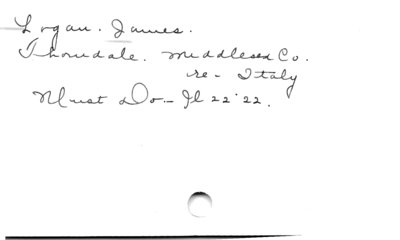 Logan. James.
Thorndale. Middlesex Co.
re - Italy
Must Do - Jl 22 '22.